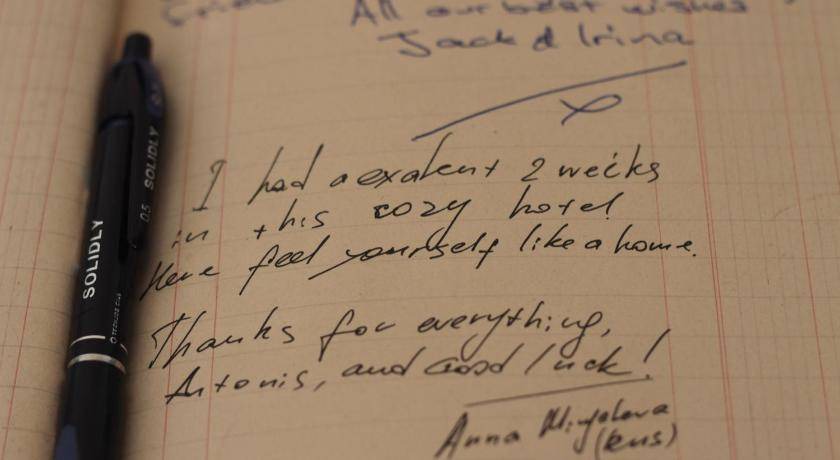 All our best wishes
Jack & Irina
I had a exalent 2 weeks
in this cozy hotel
Here feel yourself like a home.
Thanks for everything,
Antonis, and Good luck!
Anna
SOLIDLY
0.5 SOLIDLY